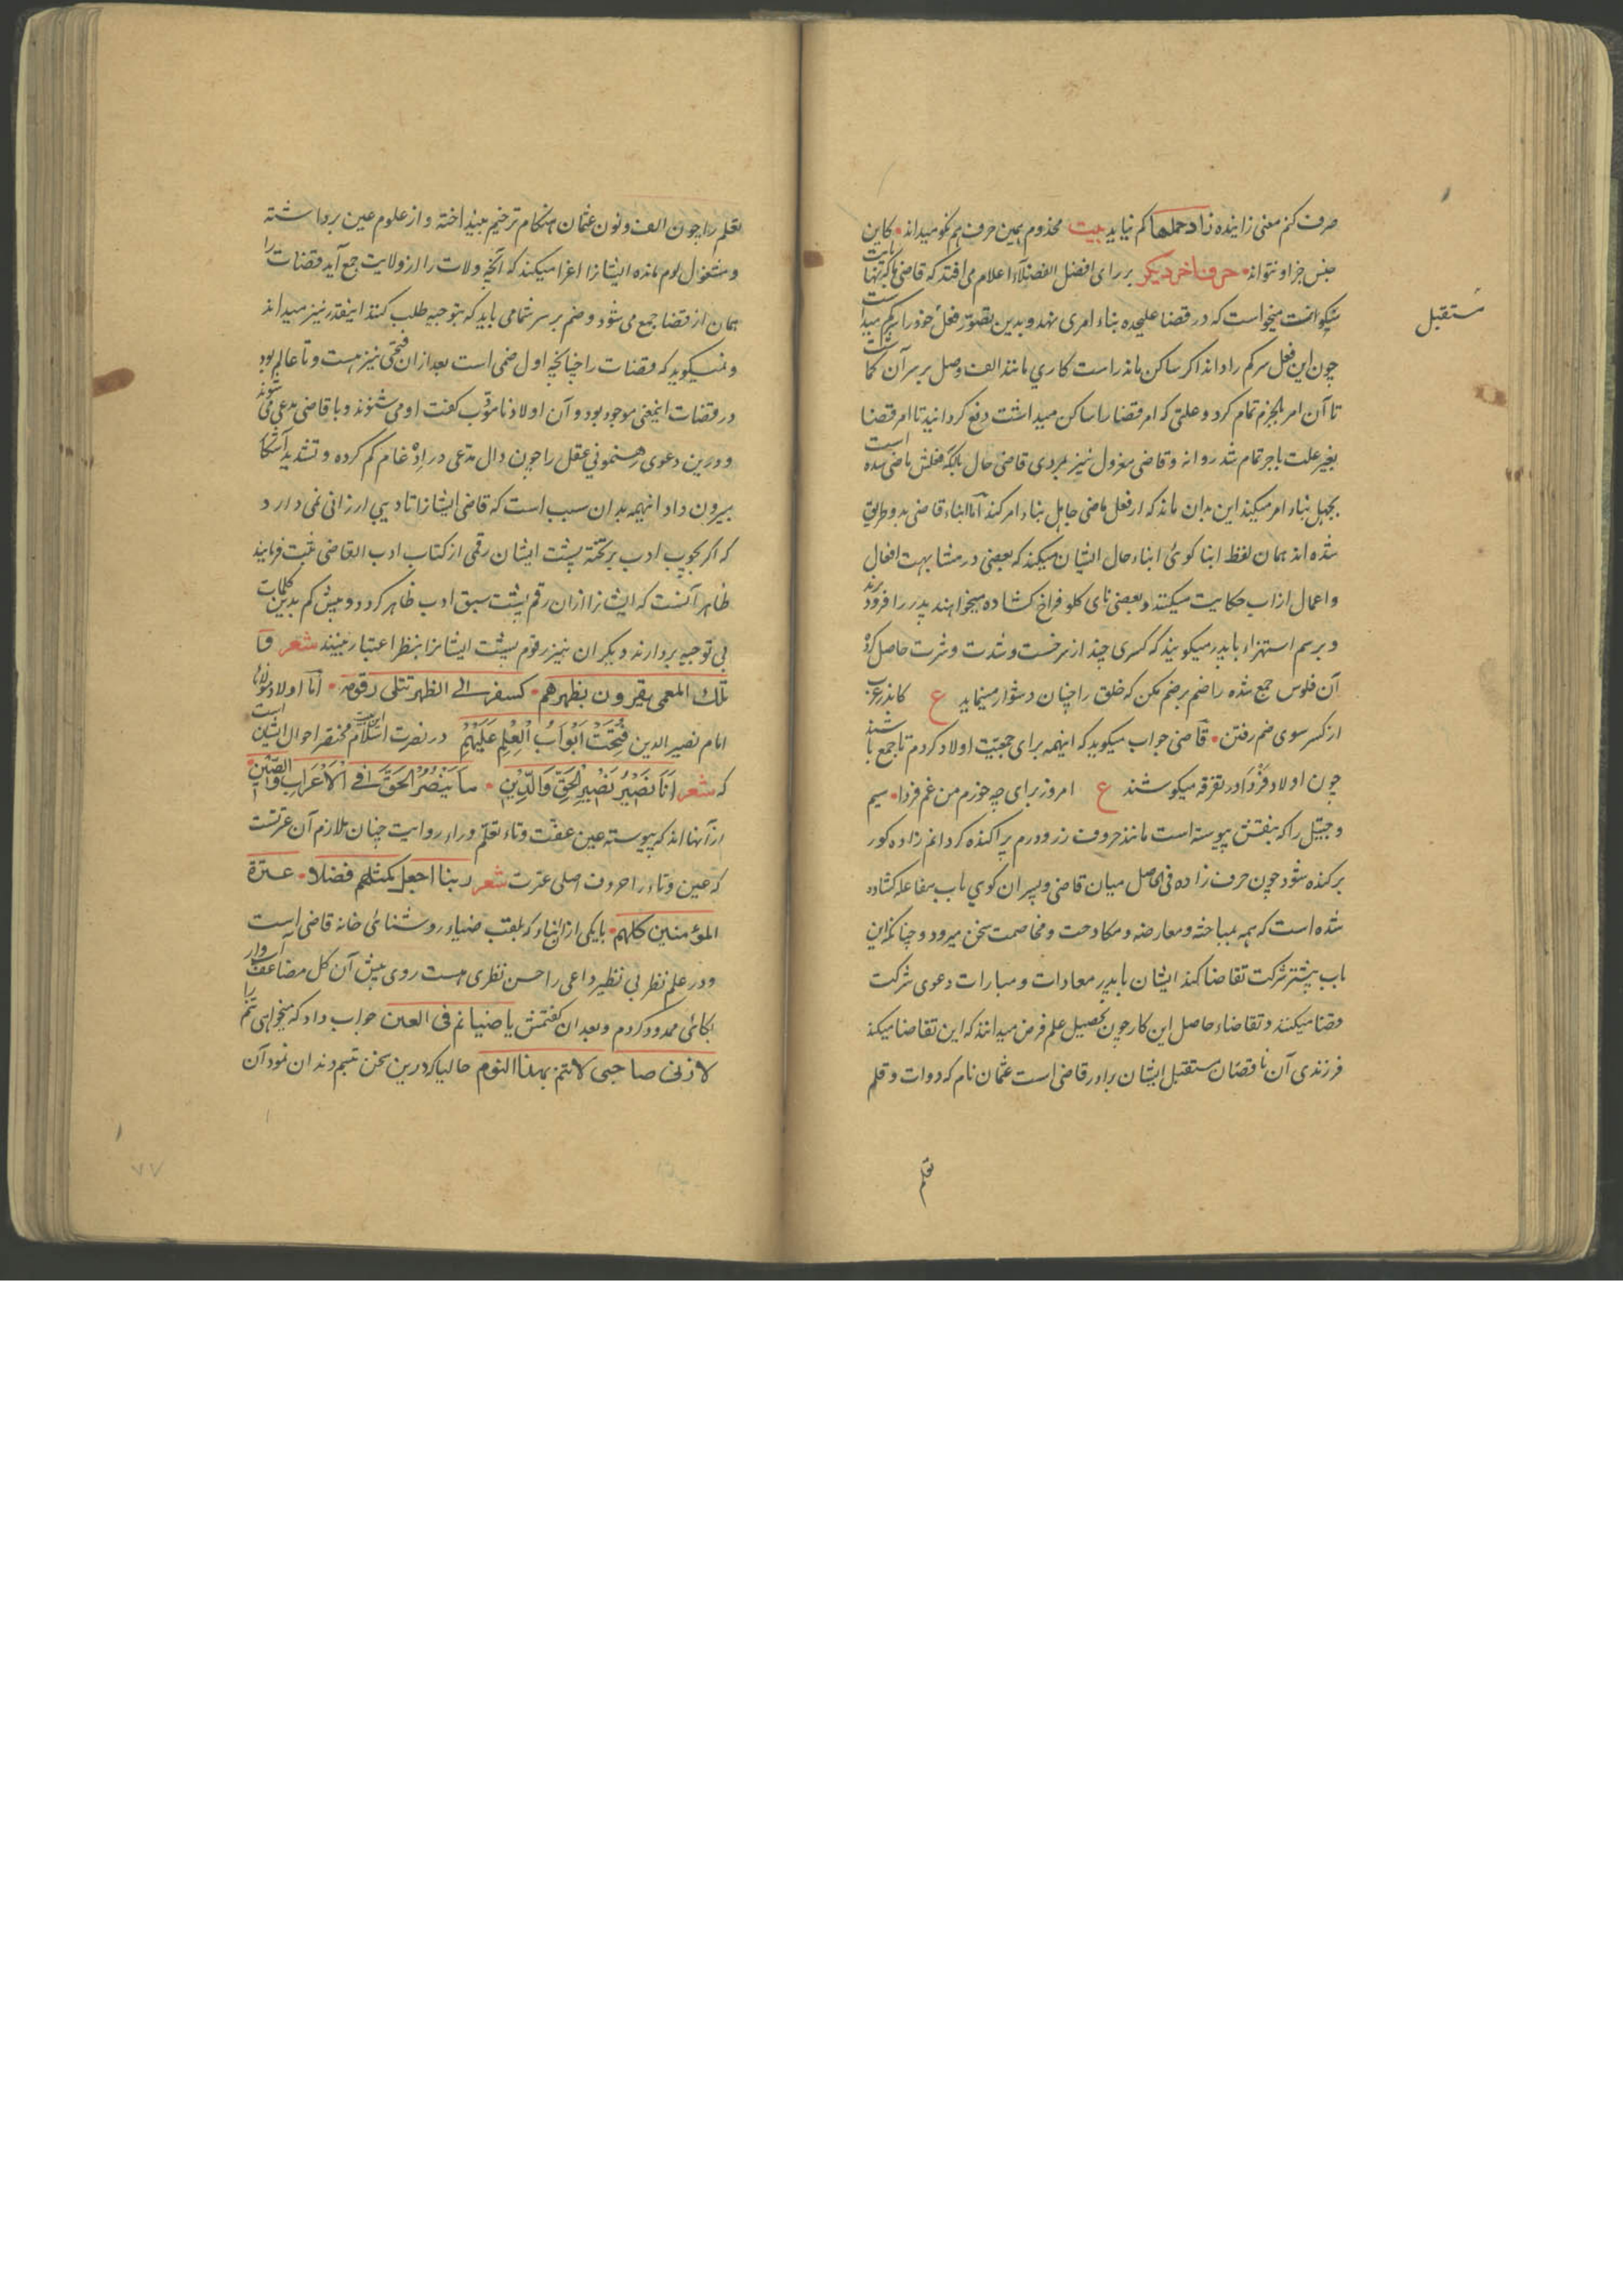 صرف کنم معنی زاینده زاد حملها کم نیاید بیت مخدوم همین حرف هم نکو میداند کاین
جنس جز او نتواند حرف اخر دیکر بر رای افضل الفضلاء اعلام می افتد که قاضی
میخواست که در قضا علیحده بناء امری نهد و بدین فعل خود را
مستقبل
چون این فعل سرکم را داند اکر ساکن ماند راست کاری مانند الف وصل بر سر آن
تا آن امر بجزم تمام کرد و علتی که امر قضا را ساکن میداشت دفع کردانید تا امر قضا
بغیر علت باجر تمام شد روانه و قاضی معزول نیز بمردی قاضی حال بانکه فعلش ماضی شده است
بجهل بناء امر میکند این بدان ماند که از فعل ماضی جاهل بناء امر کند اما ابناء قاضی بدو طریق
شده اند همان لفظ ابنا کوئی ابناء حال ایشان میکند که بعضی در مشابهت افعال
و اعمال ازاب حکایت میکنند و بعضی نای کلو فراخ کشاده میخواهند پدر را فرود برند
و برسم استهزاء باپدر میکویند که کسری چند از برخست و شدت و شرت حاصل کرد
آن فلوس جمع شده را ضم بر ضم مکن که خلق را چنان دشوار مینماید ع کاندر عرب
از کسر سوی ضم رفتن قاضی جواب میکوید که اینهمه برای جمعیت اولاد کردم تا جمع باشند
چون اولاد فردا در تفرقه میکوشند ع امروز برای چه خورم من غم فردا سیم
و جیتل را که بنفتش پیوسته است مانند حروف زر و درم پراکنده کردانم زاده کور
برکنده شود چون حرف زاده فی الحاصل میان قاضی و پسران کوی باب مفاعله کشاده
شده است که همه بمباحثه و معارضه و مکاوحت و مخاصمت سخن میرود و چنانکه این
باب بیشتر شرکت تقاضا کند ایشان باپدر معادات و مبارات دعوی شرکت
و قضا میکنند و تقاضاء حاصل این کار چون تحصیل علم فرض میدانند که این تقاضا میکند
فرزندی آن ناقصان مستقبل ایشان برادر قاضی است عثمان نام که دوات و قلم
تعلم
تعلم را چون الف و نون عثمان هنکام ترخیم بینداخته و از علوم عین برداشته
و مشغول لوم مانده ایشانرا اغرا میکند که آنچه ولات را از ولایت جمع آید قضات را
همان از قضا جمع می شود و ضم بر سر شما می باید که بتوجیه طلب کنند اینقدر نیز میداند
و نمیکوید که قضات را چنانچه اول ضمی است بعد ازان فتحی نیز هست و تا عالم بود
در قضات اینمعنی موجود بود و آن اولاد نامؤدب کفت او می شنوند و با قاضی مدعی می شوند
و درین دعوی رهنمونی عقل را چون دال مدعی در ادغام کم کرده و تشدید آشکا
بیرون داد اینهمه بدان سبب است که قاضی ایشانرا تادیبی ارزانی نمی دارد
که اکر بچوب ادب بر تخته پشت ایشان رقمی از کتاب ادب القاضی ثبت فرمایند
ظاهر آنست که ایشانرا ازان رقم پشت سبق ادب ظاهر کردد و بیش کم بدین کلمات
بی توجیه بردارند دیکران نیز رقوم پشت ایشانرا بنظر اعتبار بینند شعر
تلک المعمی یقرون بظهرهم کسفر الی الظهر تتلی رقومه اما اولاد مولانا
امام نصیر الدین فتحت ابواب العلم علیهم در نصرت اسلام مختصر احوال ایشان است
که شعر انا نصیر نصیر الحق والدین ما ینصر الحق فی الاعراب والصین
ازآنها اند که پیوسته عین عفت و تاء تعلم و راء روایت چنان ملازم آن عرتست
که عین و تاء را حروف اصلی عترت شعر ربنا اجعل کمثلهم فضلا عترة
المؤمنین کلهم بایکی از ابناء که بلقب ضیاء روشنائی خانه قاضی است
و در علم نظر بی نظیر داعی را حسن نظری هست روی پیش آن کل مضاعف
بکائی ممدود کردم و بعد ان کفتمش یا ضیا نم فی العین جواب داد که میخواهی تنم را
لا زلت صاحبی لا تتم بهذا النوم حالیا که درین سخن تبسم دندان نمود آن
۷۷